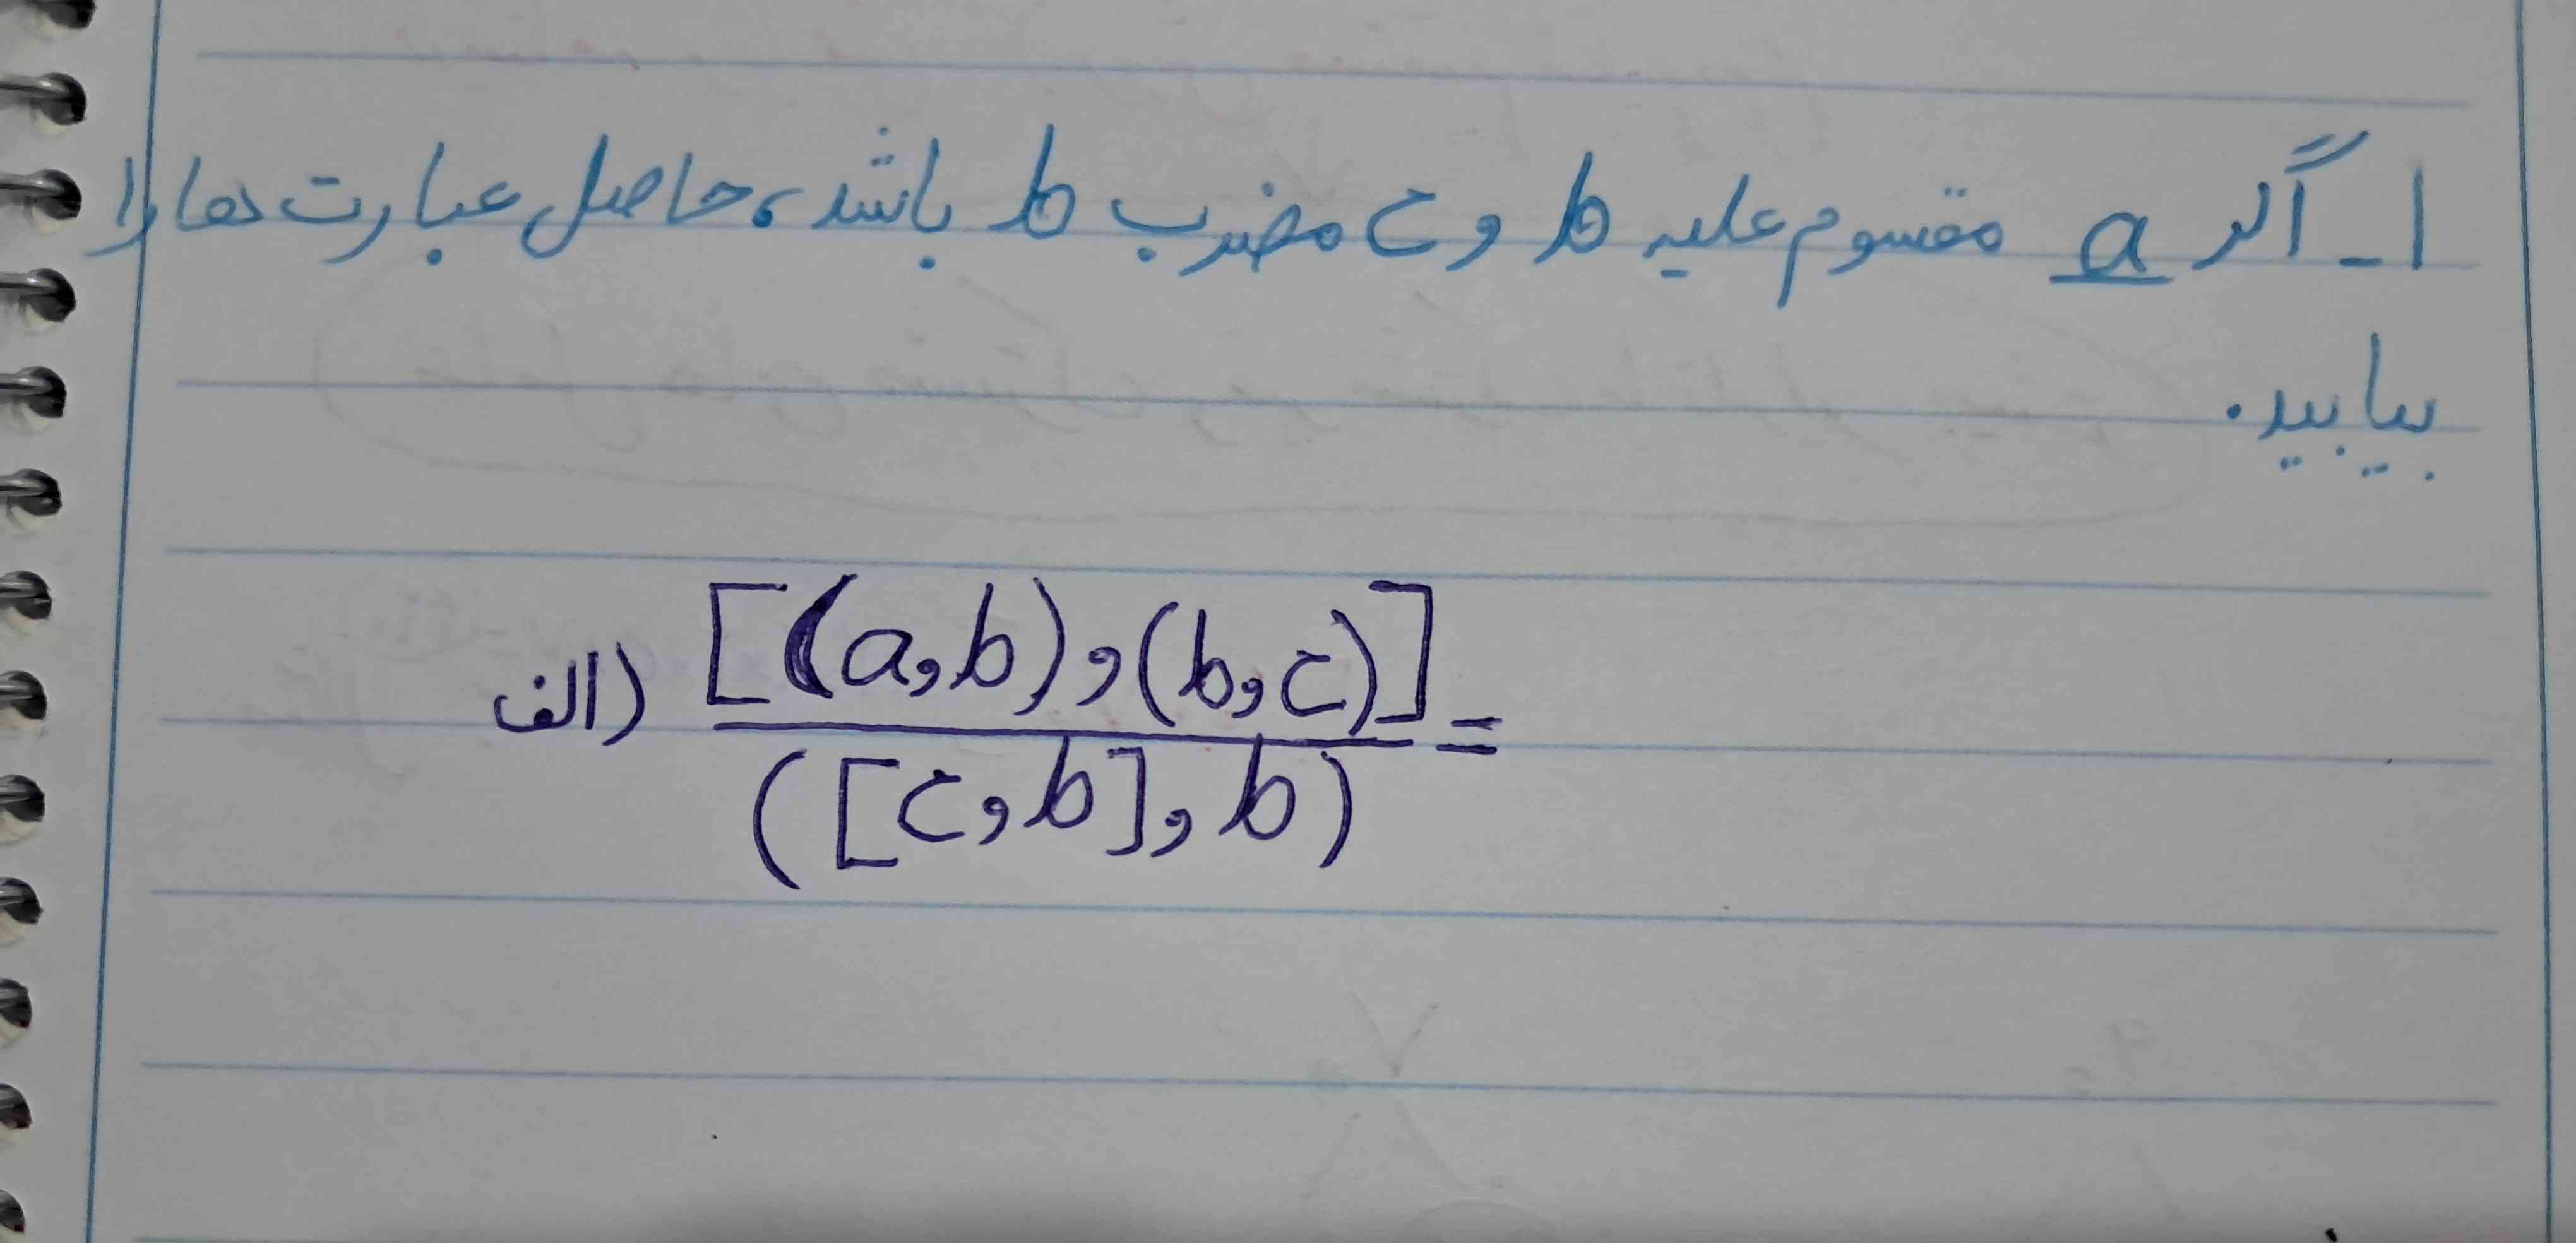 ۱- اگر a مقسوم علیه b و c مضرب b باشد، حاصل عبارت ها را
بیابید.
الف) [(a,b),(b,c)] / ([c,b],b) =